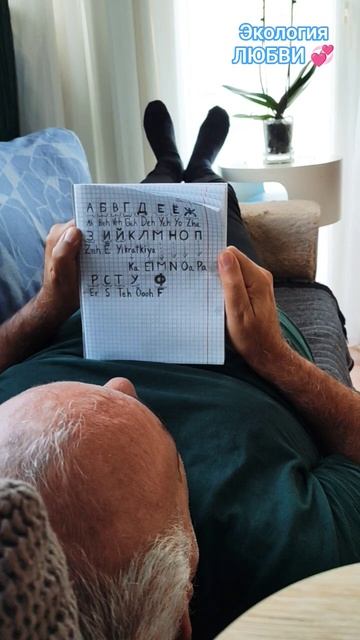 Экология
ЛЮБВИ 💞
А Б В Г Д Е Ё Ж
Ah Beh Veh Geh Deh Yeh Yo Zhe
З И Й К Л М Н О П
Zeh E Yikratkiya
Ka El M N Oa Pa
Р С Т У Ф
Er S Teh Oooh F